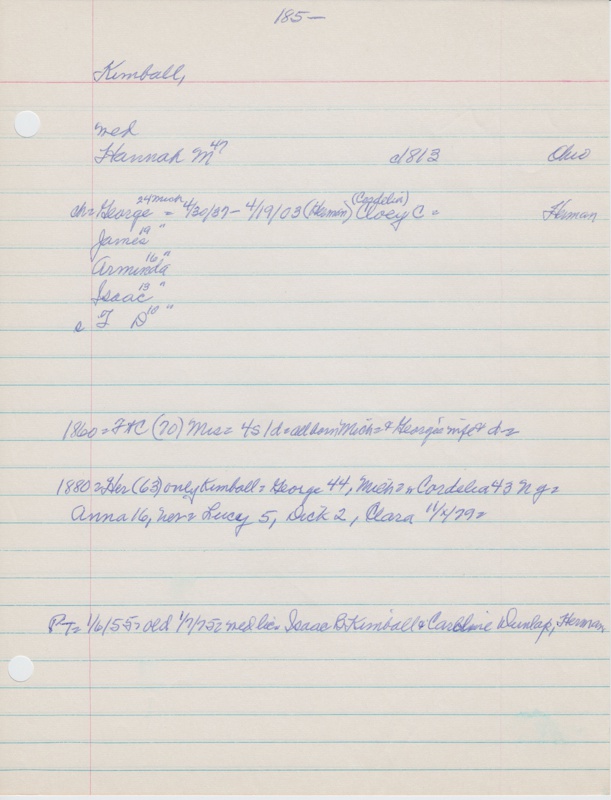 185—
Kimball,
med
Hannah M 47 c1813 Ohio
ch= George 24 Mich = 4/30/37 - 4/19/03 (Herman) (Cordelia) Cloey C = Herman
James 19 "
Arminda 16 "
Isaac 13 "
s F D 10 "
1860= F+C (70) Mrs= 4s 1d= all born Mich= + George's wife + d=
1880= Her (63) only Kimball= George 44, Mich= Cordelia 43 N Y=
Anna 16, Lucy 5, Dick 2, Clara 11/79=
PT= 1/6/55= old 1/7/75= med lic= Isaac B Kimball + Caroline Dunlap, Herman